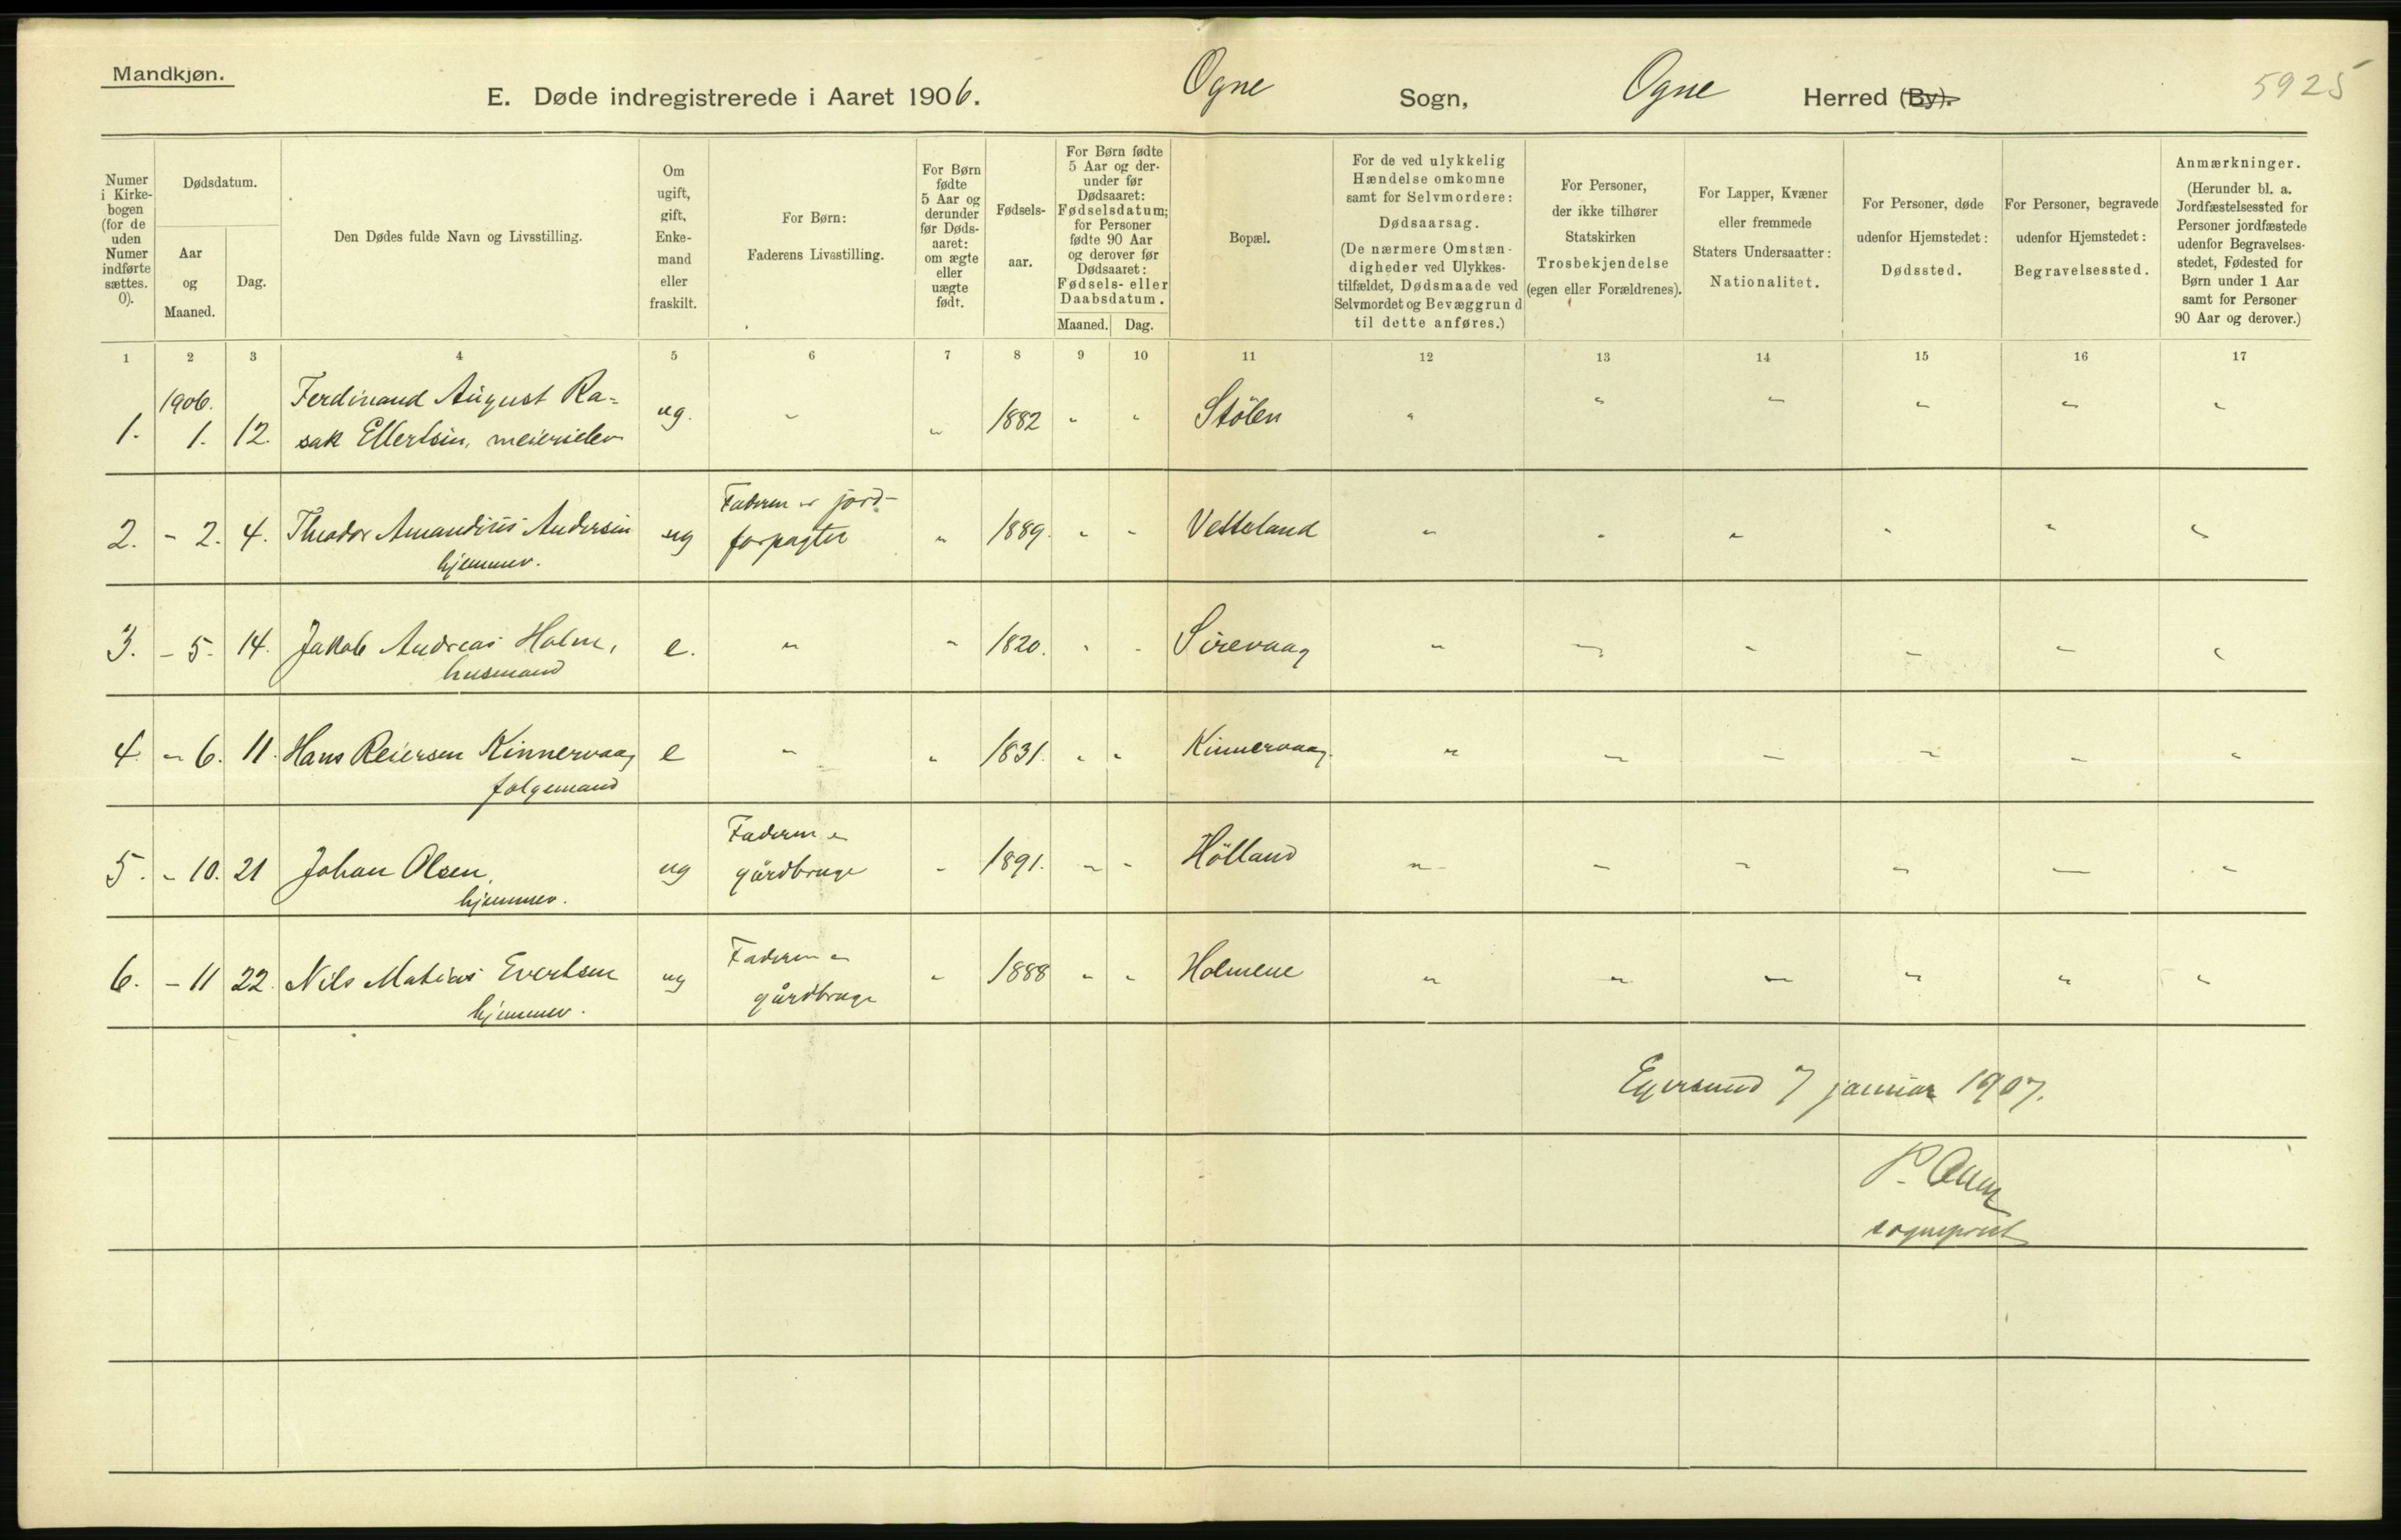 Mandkjøn.
E. Døde indregistrerede i Aaret 1906. Ogne Sogn, Ogne Herred (By).
5925
Numer i Kirkebogen (for de uden Numer indførte sættes. 0).
Dødsdatum.
Aar og Maaned.
Dag.
Den Dødes fulde Navn og Livsstilling.
Om ugift, gift, Enkemand eller fraskilt.
For Børn: Faderens Livsstilling.
For Børn fødte 5 Aar og derunder før Dødsaaret: om ægte eller uægte født.
Fødselsaar.
For Børn fødte 5 Aar og derunder før Dødsaaret: Fødselsdatum; for Personer fødte 90 Aar og derover før Dødsaaret: Fødsels- eller Daabsdatum.
Maaned. Dag.
Bopæl.
For de ved ulykkelig Hændelse omkomne samt for Selvmordere: Dødsaarsag. (De nærmere Omstændigheder ved Ulykkestilfældet, Dødsmaade ved Selvmordet og Bevæggrund til dette anføres.)
For Personer, der ikke tilhører Statskirken Trosbekjendelse (egen eller Forældrenes).
For Lapper, Kvæner eller fremmede Staters Undersaatter: Nationalitet.
For Personer, døde udenfor Hjemstedet: Dødssted.
For Personer, begravede udenfor Hjemstedet: Begravelsessted.
Anmærkninger. (Herunder bl. a. Jordfæstelsessted for Personer jordfæstede udenfor Begravelsesstedet, Fødested for Børn under 1 Aar samt for Personer 90 Aar og derover.)
1 2 3 4 5 6 7 8 9 10 11 12 13 14 15 16 17
1906.
Ferdinand August Ra=
1. 1. 12. sak Ellertsen, meierielev ug. " " 1882 " " Stölen " " " " " "
Faderen er jord-
2. - 2. 4. Theodor Amandius Andersen ug forpagter " 1889. " " Vetteland " " " " " "
hjemmev.
3. - 5. 14. Jakob Andreas Holm, e. " " 1820. " " Sirevaag " " " " " "
husmand
4. - 6. 11. Hans Reiersen Kinnervaag e " " 1831. " " Kinnervaag. " " " " " "
folgemand
Faderen er
5. - 10. 21 Johan Olsen, ug gårdbruger " 1891. " " Hölland " " " " " "
hjemmev.
Faderen er
6. - 11 22. Nils Matias Evertsen ug gårdbruger " 1888 " " Holmene " " " " " "
hjemmev.
Egersund 7 januar 1907.
P.
sogneprest